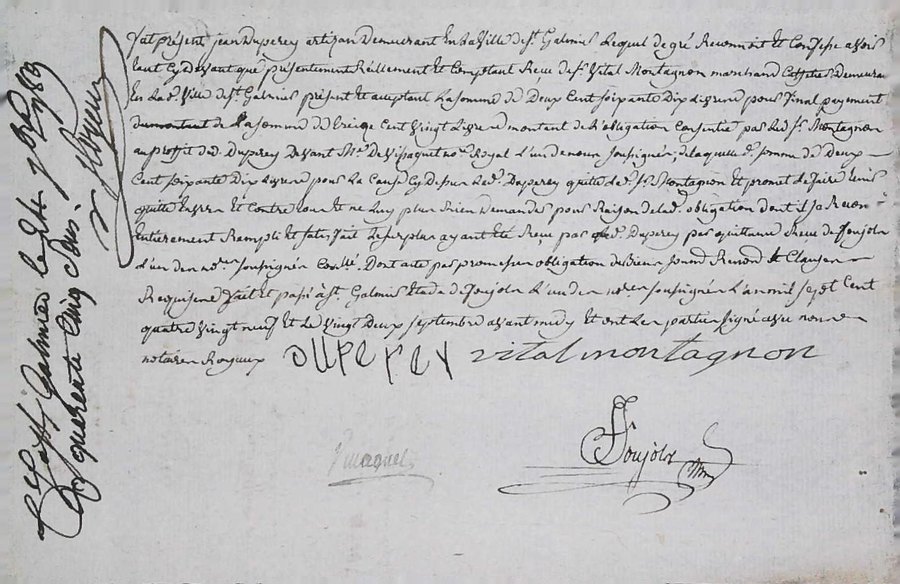 fut présent jean Duperey artizan Demeurant En la Ville de st. Galmier Lequel de gré Reconnoit et Confesse avoir
Cy Devant que présentement Réellement et Comptant Receu de sr. Vital Montagnon marchand Demeurant
En Lad. Ville de st. Galmier présent et acceptant La somme de Deux Cent soixante Dix Livres pour final payement
du montant de La somme de treize Cent vingt Livres montant de L'obligation Consentie par Led. sr. Montagnon
au proffit dud. Duperey Devant Me. nore. Royal L'un de nous soussignés, de laquelle d. somme de Deux
Cent soixante Dix Livres pour La Cause Cy Dessus Led. Duperey quitte led. sr. Montagnon et promet de faire tenir
quitte Envers et Contre tous et ne Luy plus Rien Demander pour Raison de lad. obligation dont il se Reconnoit
Entierement Rempli et satisfait Le surplus ayant été Reçu par led. Duperey par quittance Reçue de Foujols
L'un des nores. soussignés Dont acte par promesses obligation de Biens soumis. Renond. et Clauses
Requises fait et passé à st. Galmier Etude de Foujols L'un des nores. soussignés L'an mil sept Cent
quatre vingt neuf et Le vingt Deux septembre avant midy et ont Les parties signé avec nous
notaires Royaux
DUPEREY vital montagnon
Foujols
st. Galmier le 7bre 1789
Reçu quarente Cinq sous.